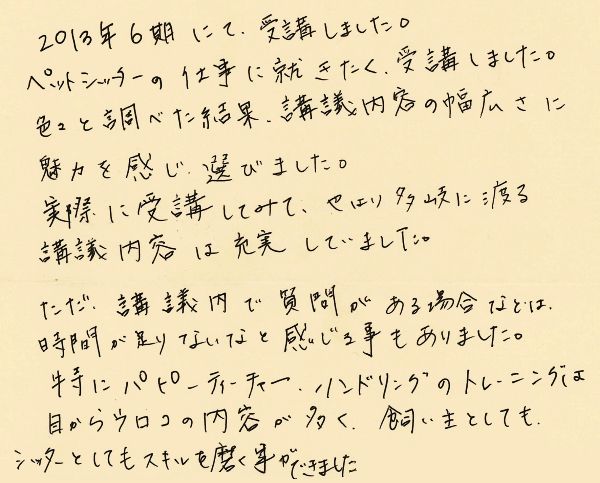 2013年6期にて、受講しました。
ペットシッターの仕事に就きたく、受講しました。
色々と調べた結果、講議内容の幅広さに
魅力を感じ、選びました。
実際に受講してみて、やはり多岐に渡る
講議内容は充実していました。
ただ、講議内で質問がある場合などは、
時間が足りないなと感じる事もありました。
特にパピーティーチャー、ハンドリングのトレーニングは
目からウロコの内容が多く、飼い主としても、
シッターとしてもスキルを磨く事ができました